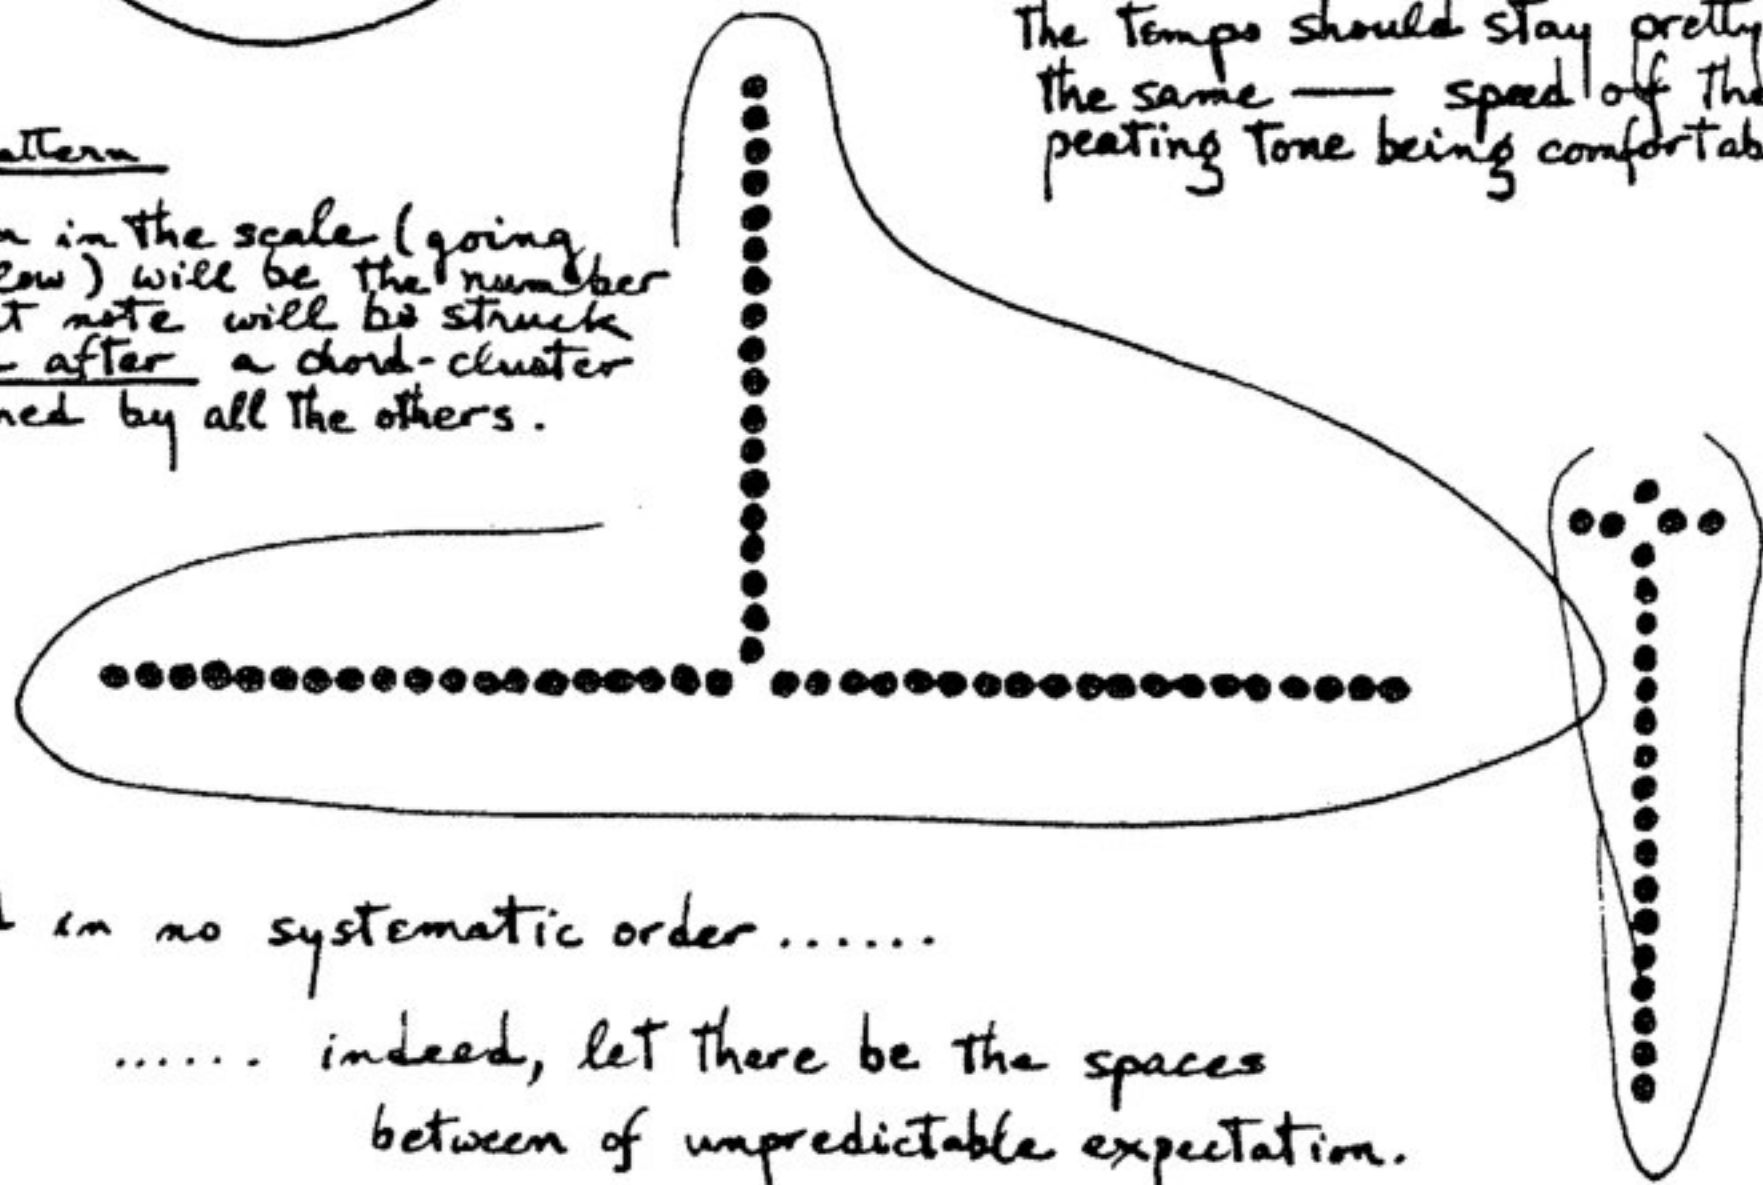 The tempo should stay pretty
the same — speed of the
peating tone being comfortab
attern
n in the scale (going
low) will be the number
t note will be struck
after a chord-cluster
ned by all the others.
in no systematic order ......
...... indeed, let there be the spaces
between of unpredictable expectation.